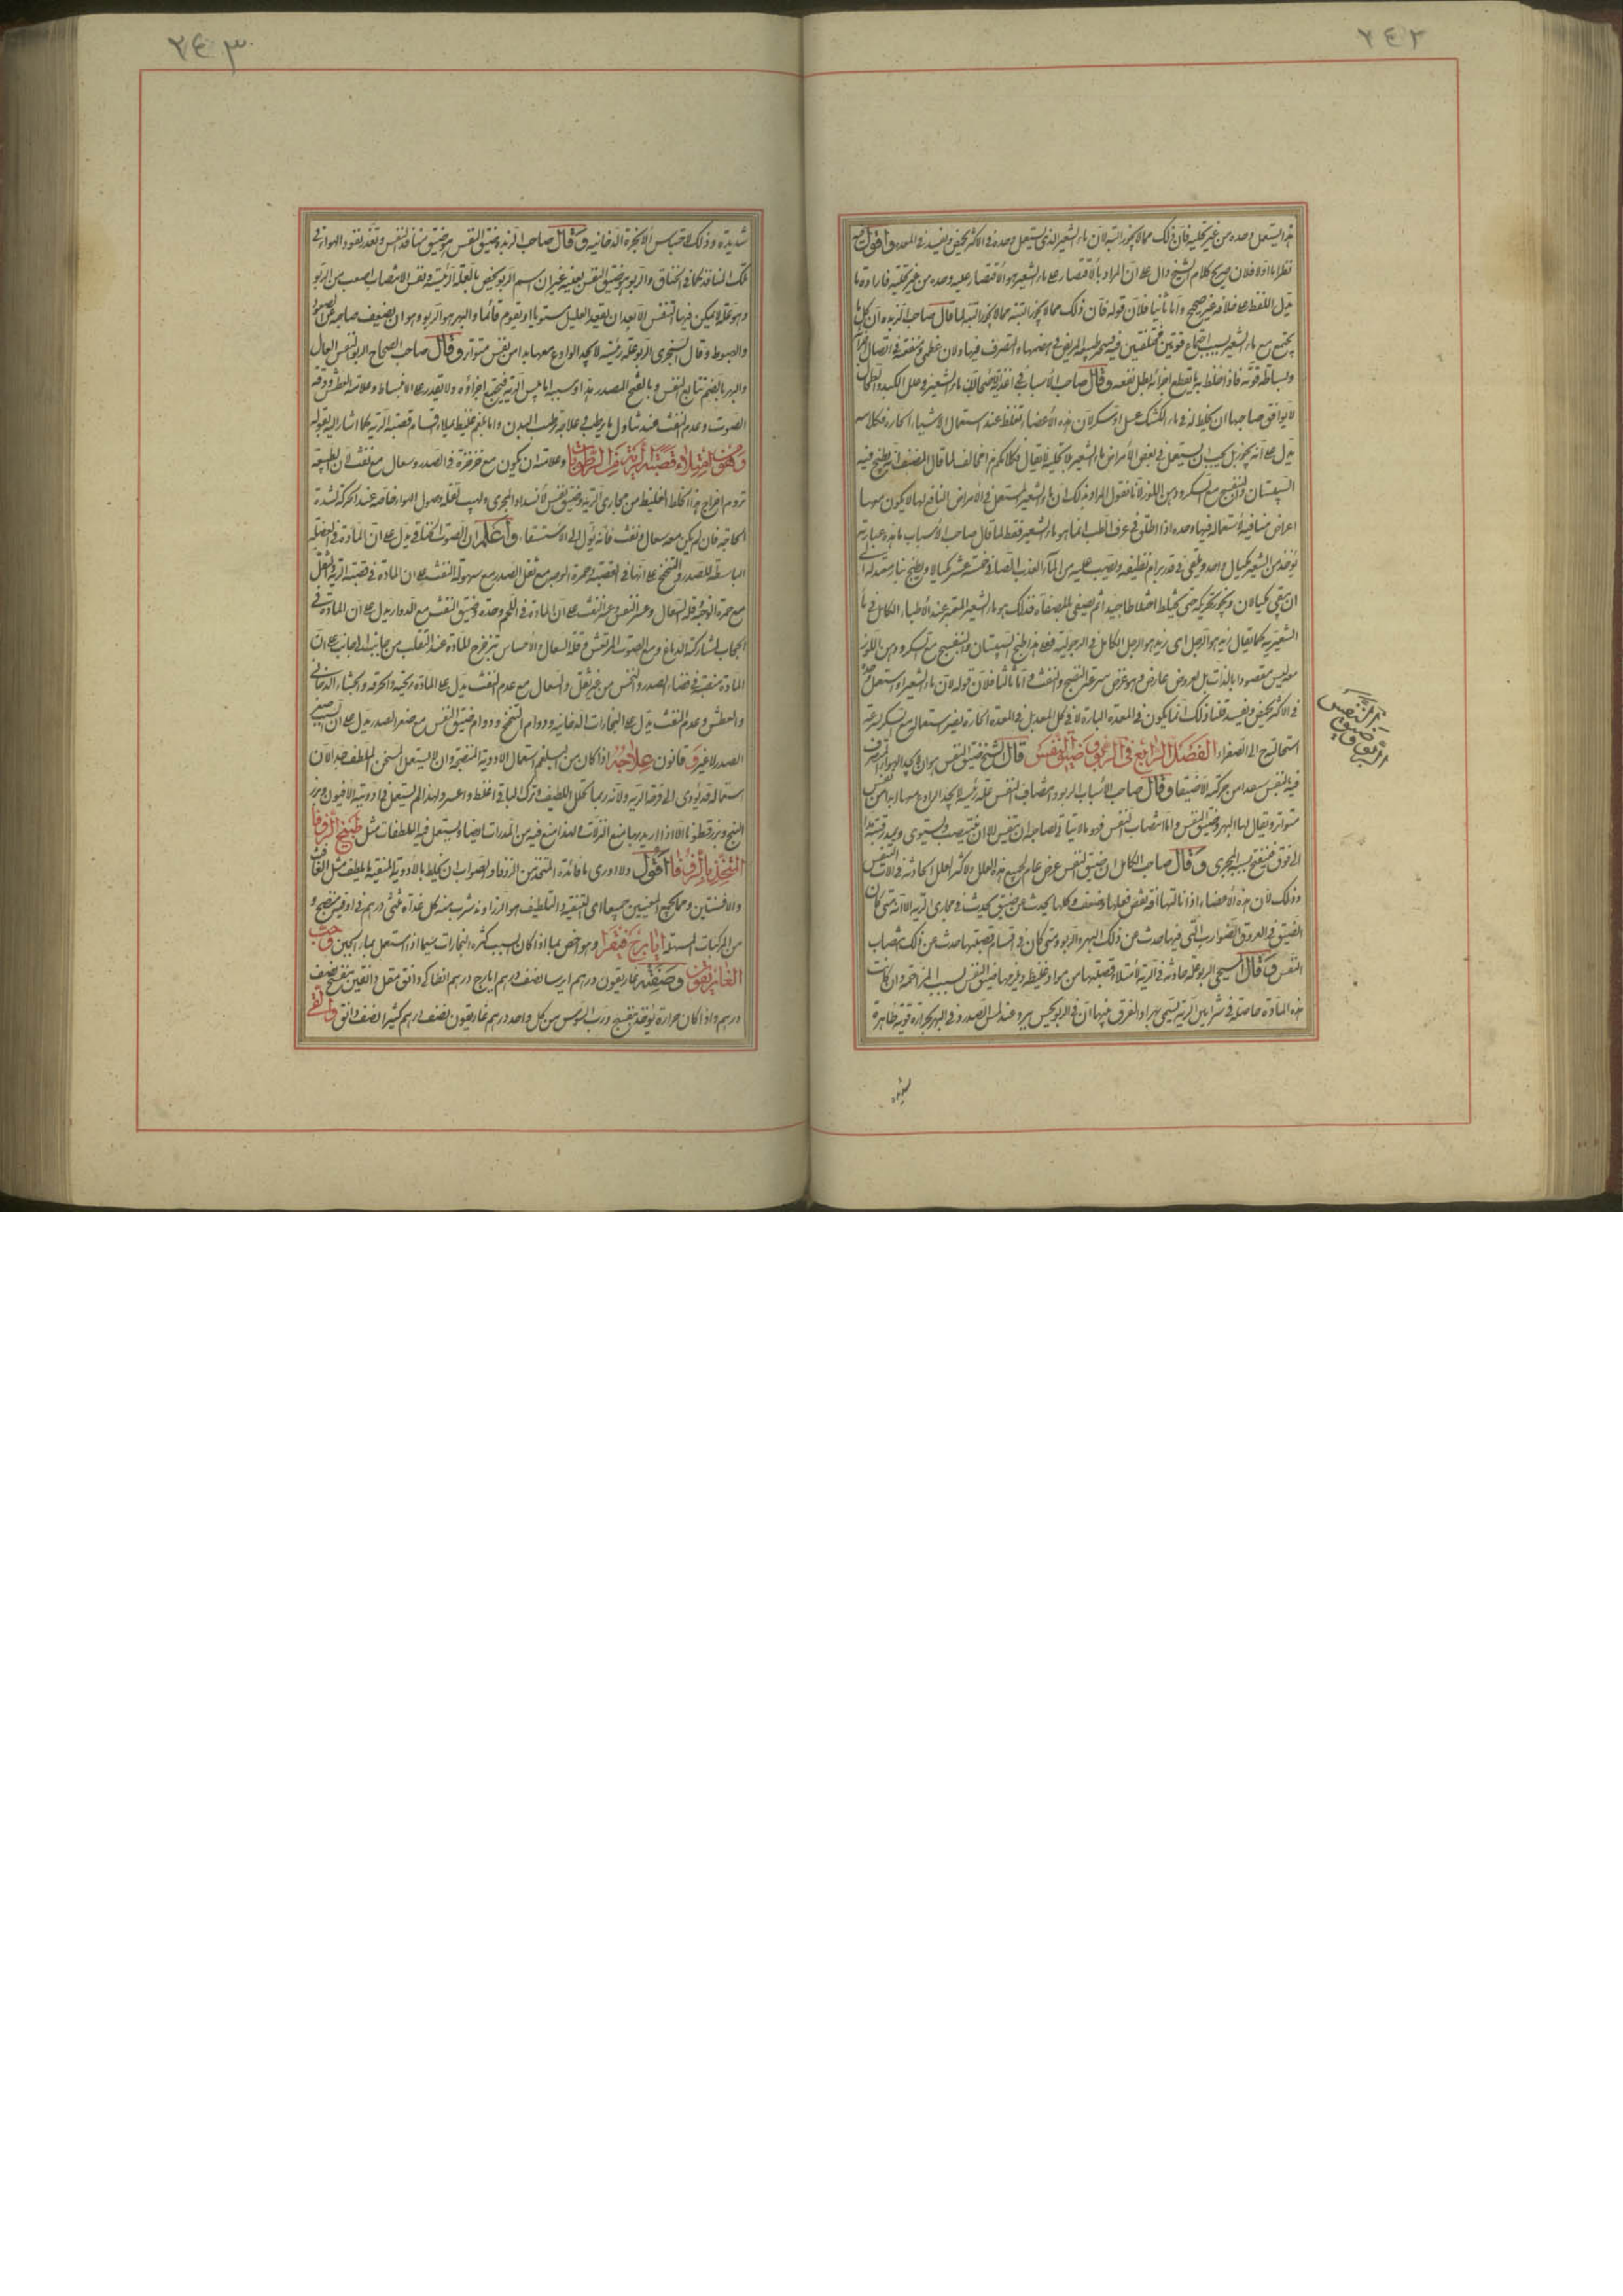 ٢٤٢
هذا يستعمل وحده من غير تحلية فان ذلك مما لا يجوز البتة لان ماء الشعير الذى يستعمل وحده فى الاكثر يحمض ويفسد فى المعدة واقول فيه
نظر اما اولا فلان صريح كلام الشيخ دال على ان المراد بالاقتصار على ماء الشعير هو الاقتصار عليه وحده من غير تحلية فارادة ما
يدل اللفظ على خلافه غير صحيح واما ثانيا فلان قوله فان ذلك مما لا يجوز البتة مما لا يجوز البتة لما قال صاحب الزبدة ان كل ما
يجتمع مع ماء الشعير بسبب اجتماع قوتين مختلفتين فيه يتحير طبيعة المريض فى هضمها والتصرف فيها ولان
ولبساطة قوته فاذا خلط به ما يقطع اجزائه ابطل نفعه وقال صاحب الاسباب فى اغذية ماء الشعير وعلل الكبد والطحال
لا يوافق صاحبها ان يخلط له فى ماء الكشك عسل او سكر لان هذه الاعضاء تغلظ عند استعمال الاشياء الحارة فكلامه
يدل على انه يجوز بل يجب ان يستعمل فى بعض الامراض ماء الشعير بلا تحلية لا يقال فكلامكم هذا مخالف لما قال المصنف انه يطبخ فيه
السپستان والبنفسج مع السكر ودهن اللوز لانا نقول المراد بذلك ان ماء الشعير المستعمل فى الامراض النافع لها لا يكون معها
اعراض منافية لاستعماله فيها وحده اذا اطلق فى عرف الطب انما هو ماء الشعير فقط لما قال صاحب الاسباب ما هذه عبارته
يؤخذ من الشعير مكيال واحد ويلقى فى قدر برام نظيفة ويصب عليه من الماء العذب الصافى خمسة عشر مكيالا ويطبخ بنار معتدلة الى
ان يبقى مكيالان ويجود تحريكه حتى يختلط اختلاطا جيدا ثم يصفى بالمصفاة فذلك هو ماء الشعير المعتبر عند الاطباء الكامل فى ماء
الشعيرية كما يقال زيد هو الرجل اى زيد هو الرجل الكامل فى الرجولية فعلى هذا طبخ السپستان والبنفسج مع السكر ودهن اللوز
معه ليس مقصودا بالذات بل لعروض عارض هو غرض سرعة النضج والنفث واما ثالثا فلان قوله لان ماء الشعير اذا استعمل وحده
فى الاكثر يحمض ويفسد قلنا ذلك انما يكون فى المعدة الباردة لا فى كل المعد بل فى المعدة الحارة يضر استعماله مع السكر لسرعة
استحالته الى الصفراء الفصل الرابع فى الربو وضيق النفس قال الشيخ ضيق النفس هو ان لا يجد الهواء المتصرف
فيه بالنفس منفذا من حركته الا ضيقا وقال صاحب الاسباب الربو وانتصاب النفس علة رئية لا يجد الوادع معها بدا من نفس
متواتر ويقال لها البهر وضيق النفس واما انتصاب النفس فهو ما لا يتأتى لصاحبه ان يتنفس الا ان ينتصب ويستوى ويمد رقبته مدا
الى فوق فينفتح به المجرى وقال صاحب الكامل ان ضيق النفس عرض عام لجميع هذه العلل ولاكثر العلل الحادثة فى آلات التنفس
وذلك لان هذه الاعضاء اذا نالتها آفة نقص فعلها وضعف وكلها يحدث عن ضيق يحدث فى مجارى الرية الا انه متى كان
الضيق فى العروق الضوارب التى فيها حدث عن ذلك البهر والربو ومتى كان فى اقسام قصبتها حدث عن ذلك انتصاب
النفس وقال المسيحى الربو علة حادثة فى الرية لامتلاء قصبتها من مواد غليظة ولزجة ضيق النفس بسبب المزاحمة وان كانت
هذه المادة حاصلة فى شرايين الرية سمى بهرا والفرق فيهما ان فى الربو يحس ببرد عند لمس الصدر وفى البهر بحرارة قوية ظاهرة
فى الربو وضيق النفس
شديدة
٢٤٣
شديدة وذلك لاحتباس الابخرة الدخانية وقال صاحب الزبدة ضيق النفس هو ضيق منافذ النفس وتعذر نفوذ الهواء فى
تلك المنافذ كما فى الخناق والربو هو ضيق النفس بعينه غير ان اسم الربو يخص بالعلة الرئية ونفس الانتصاب اصعب من الربو
وهو علة لا يمكن فيها التنفس الا بعد ان يقعد العليل مستويا او يقوم قائما والبهر هو الربو وهو ان يضعف صاحبه عن الصعود
والهبوط وقال السجزى الربو علة رئية لا يجد الوادع معها بدا من نفس متواتر وقال صاحب الصحاح الربو النفس العال
والبهر بالضم تتابع النفس وبالفتح المصدر هذا وسببه اما يبس الرية فيجتمع اجزاؤه ولا يقدر على الانبساط وعلامته العطش ودقة
الصوت وعدم النفث عند تناول ما يرطب علاجه ترطيب البدن واما بلغم غليظ يملا اقسام قصبة الرية كما اشار اليه بقوله
وهو امتلاء قصبة الرية من الرطوبات وعلامته ان يكون مع خرخرة فى الصدر وسعال مع نفث لان الطبيعة
تروم اخراج هذا الخلط الغليظ من مجارى الرية وضيق نفس لانسداد المجرى ولهيب لقلة وصول الهواء خاصة عند الحركة لشدة
الحاجة فان لم يكن معه سعال ونفث فانه يؤل الى الاستسقاء واعلم ان الصوت الحناقى يدل على ان المادة فى العضلة
الباسطة للصدر والتنحنح على انها فى القصبة وحمرة الوجه مع ثقل الصدر مع سهولة النفث على ان المادة فى قصبة الرية والثقل
مع حمرة الوجه وقلة السعال وعسر النفس وعسر النفث على ان المادة فى اللحم وحده وضيق النفس مع الدوار يدل على ان المادة فى
الحجاب لمشاركته الدماغ ومع الصوت المرتعش وقلة السعال والاحساس بترجرج المادة عند التقلب من جانب الى جانب على ان
المادة منصبة فى فضاء الصدر والنخس من غير ثقل والسعال مع عدم النفث يدل على المادة ريحية والحرقة والجشاء الدخانى
والعطش وعدم النفث يدل على البخارات الدخانية ودوام التنحنح ودوام ضيق النفس مع صغر الصدر يدل على ان السبب صغر
الصدر لا غير وقانون علاجه اذا كان من البلغم استعمال الادوية المنضجة وان لا يستعمل المسخن الملطف جدا لان
استعماله قد يؤدى الى قرحة الرية ولانه ربما تحلل اللطيف وترك الباقى اغلظ واعسر ولهذا لم يستعمل فى ادويته الافيون وبزر
البنج وبزرقطونا الا اذا اريد بها منع النزلات لهذا منع فيه من المدرات ايضا ويستعمل فيه الملطفات مثل طبيخ الزوفا
المتخذ بالزوفا اقول ولا ادرى ما فائدة المتخذ من الزوفا والصواب ان يخلط بالادوية المنقية الملطفة مثل الغافث
والافسنتين ومما يجمع المعنيين جميعا اى التنقية والتلطيف هو الزراوند يشرب منه كل غداة ثلثى درهم فى اوقية من نضيج و
من المركبات المسهلة ايارج فيقرا وهو اخص بما اذا كان بسبب كثرة البخارات سيما اذا استعمل بماء الجبن وحب
الغاريقون وصفته غاريقون درهم ايرسا نصف درهم ايارج درهم انطاكى دانق مقل دانقين بنفسج نصف
درهم واذا كان حرارة يؤخذ بنفسج ورب السوس من كل واحد درهم غاريقون نصف درهم كثيرا نصف دانق والقى